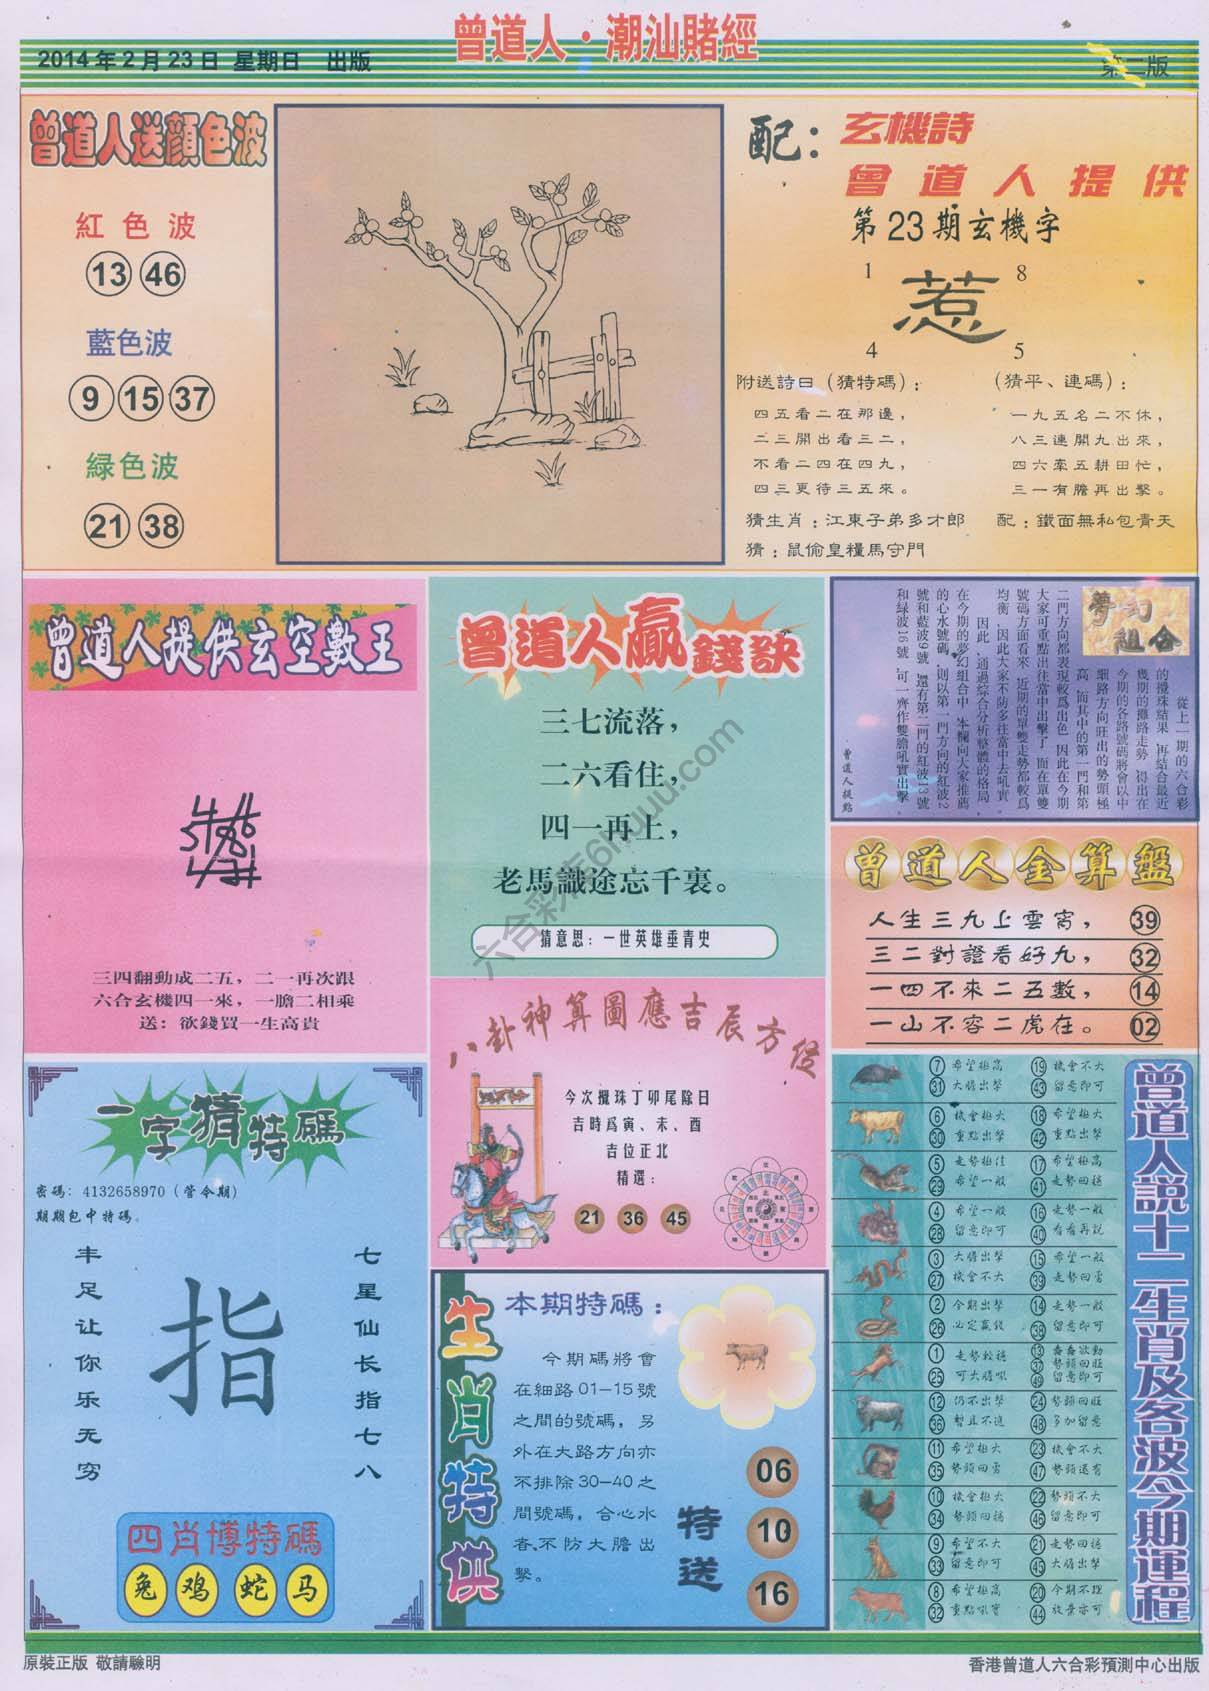 曾道人·潮汕賭經
2014年2月23日 星期日 出版
第二版
曾道人送顏色波
紅色波
13 46
藍色波
9 15 37
緑色波
21 38
配：玄機詩
曾道人提供
第23期玄機字
1 8
惹
4 5
附送詩曰（猜特碼）：
四五看二在那邊，
二三開出看三二，
不看二四在四九，
四三更待三五來。
（猜平、連碼）：
一九五名二不休，
八三連開九出來，
四六牽五耕田忙，
三一有膽再出擊。
猜生肖：江東子弟多才郎
配：鐵面無私包青天
猜：鼠偷皇糧馬守門
曾道人提供玄空數王
三四翻動成二五，二一再次跟
六合玄機四一來，一膽二相乘
送：欲錢買一生高貴
曾道人贏錢訣
三七流落，
二六看住，
四一再上，
老馬識途忘千裏。
猜意思：一世英雄垂青史
夢幻組合
從上一期的六合彩
的攪珠結果，再結合最近
幾期的攤路走勢，得出在
今期的各路號碼將會以中
細路方向旺出的勢頭極
高，而其中的第一門和第
二門方向都表現較爲出色，因此在今期
大家可重點出往當中出擊了，而在單雙
號碼方面看來，近期的單雙走勢都較爲
均衡，因此大家不防多往當中去吼實。
因此，通過綜合分析整體的格局，
在今期的夢幻組合中，本欄向大家推薦
的心水號碼，則以第一門方向的紅波2
號和藍波9號，還有第二門的紅波13號
和緑波16號，可一齊作雙膽吼實出擊。
曾道人提點
曾道人金算盤
人生三九上雲宵， 39
三二對證看好九， 32
一四不來二五數， 14
一山不容二虎在。 02
八卦神算圖應吉辰方位
今次攪珠丁卯尾除日
吉時爲寅、未、酉
吉位正北
精選：
21 36 45
一字猜特碼
密碼：4132658970（管令期）
期期包中特碼。
丰足让你乐无穷
指
七星仙长指七八
四肖博特碼
兔 鸡 蛇 马
生肖特供
本期特碼：
今期碼將會
在細路01-15號
之間的號碼，另
外在大路方向亦
不排除30-40之
間號碼，合心水
者,不防大膽出
擊。
特送
06
10
16
曾道人説十二生肖及各波今期運程
7 希望極高 19 機會不大
31 大膽出擊 43 留意即可
6 機會極大 18 希望極大
30 重點出擊 42 重點出擊
5 走勢極佳 17 希望極高
29 希望一般 41 走勢回穩
4 希望一般 16 走勢一般
28 留意即可 40 看看再説
3 大膽出擊 15 希望一般
27 機會不大 39 走勢回勇
2 今期出擊 14 走勢一般
26 必定贏錢 38 留意即可
1 走勢較穩 13 蠢蠢欲動
25 可大膽吼 37 勢頭回旺
49 留意即可
12 仍不出擊 24 勢頭回旺
36 暫且不追 48 多加留意
11 希望極大 23 機會不大
35 勢頭回勇 47 勢頭還有
10 機會極大 22 勢頭不大
34 勢頭回穩 46 留意即可
9 希望不大 21 走勢回穩
33 留意即可 45 大膽出擊
8 希望極高 20 今期不理
32 重點吼實 44 放棄亦可
原裝正版 敬請驗明
香港曾道人六合彩預測中心出版
六合彩库6huu.com